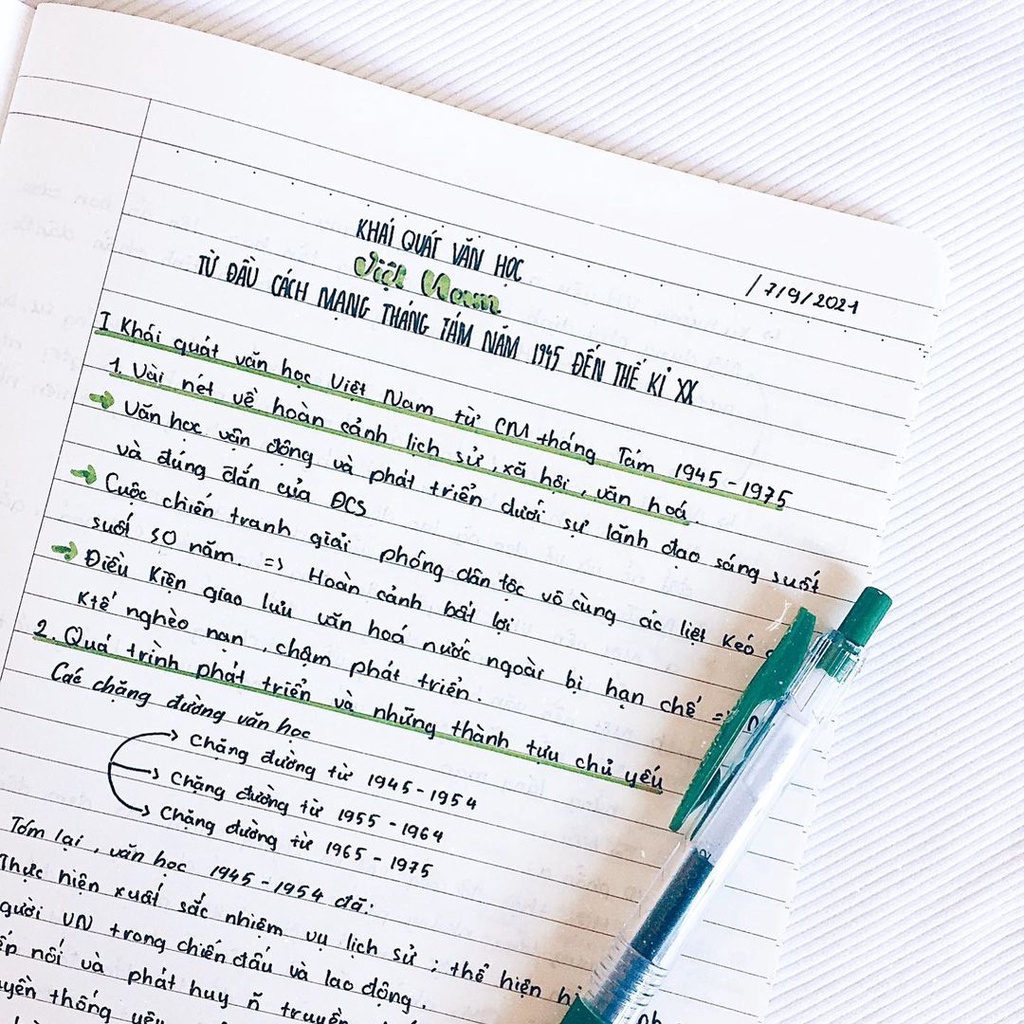 KHÁI QUÁT VĂN HỌC
Việt Nam
/7/9/2021
TỪ ĐẦU CÁCH MẠNG THÁNG TÁM NĂM 1945 ĐẾN THẾ KỈ XX
I Khái quát văn học Việt Nam từ CM tháng Tám 1945 - 1975
1. Vài nét về hoàn cảnh lịch sử, xã hội, văn hoá.
→ Văn học vận động và phát triển dưới sự lãnh đạo sáng suốt
và đúng đắn của ĐCS
→ Cuộc chiến tranh giải phóng dân tộc vô cùng ác liệt kéo
suốt 30 năm. => Hoàn cảnh bất lợi
→ Điều kiện giao lưu văn hoá nước ngoài bị hạn chế =>
Ktế nghèo nàn, chậm phát triển.
2. Quá trình phát triển và những thành tựu chủ yếu
Các chặng đường văn học
→ Chặng đường từ 1945 - 1954
→ Chặng đường từ 1955 - 1964
→ Chặng đường từ 1965 - 1975
Tóm lại, văn học 1945 - 1954 đã:
Thực hiện xuất sắc nhiệm vụ lịch sử ; thể hiện
người VN trong chiến đấu và lao động.
nối và phát huy
thống